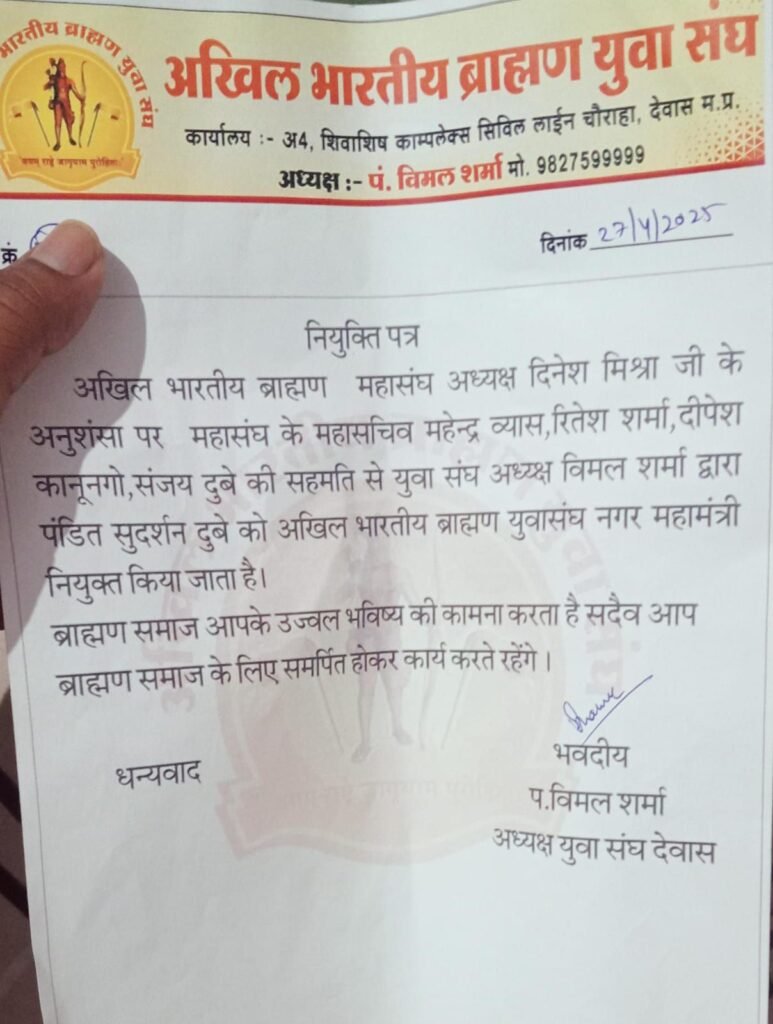 भारतीय ब्राह्मण युवा संघ
अखिल भारतीय ब्राह्मण युवा संघ
कार्यालय :- अ4, शिवाशिष काम्पलेक्स सिविल लाईन चौराहा, देवास म.प्र.
अध्यक्ष :- पं. विमल शर्मा मो. 9827599999
क्रं
दिनांक 27/4/2025
नियुक्ति पत्र
अखिल भारतीय ब्राह्मण महासंघ अध्यक्ष दिनेश मिश्रा जी के
अनुशंसा पर महासंघ के महासचिव महेन्द्र व्यास,रितेश शर्मा,दीपेश
कानूनगो,संजय दुबे की सहमति से युवा संघ अध्यक्ष विमल शर्मा द्वारा
पंडित सुदर्शन दुबे को अखिल भारतीय ब्राह्मण युवासंघ नगर महामंत्री
नियुक्त किया जाता है।
ब्राह्मण समाज आपके उज्वल भविष्य की कामना करता है सदैव आप
ब्राह्मण समाज के लिए समर्पित होकर कार्य करते रहेंगे ।
धन्यवाद
भवदीय
प.विमल शर्मा
अध्यक्ष युवा संघ देवास